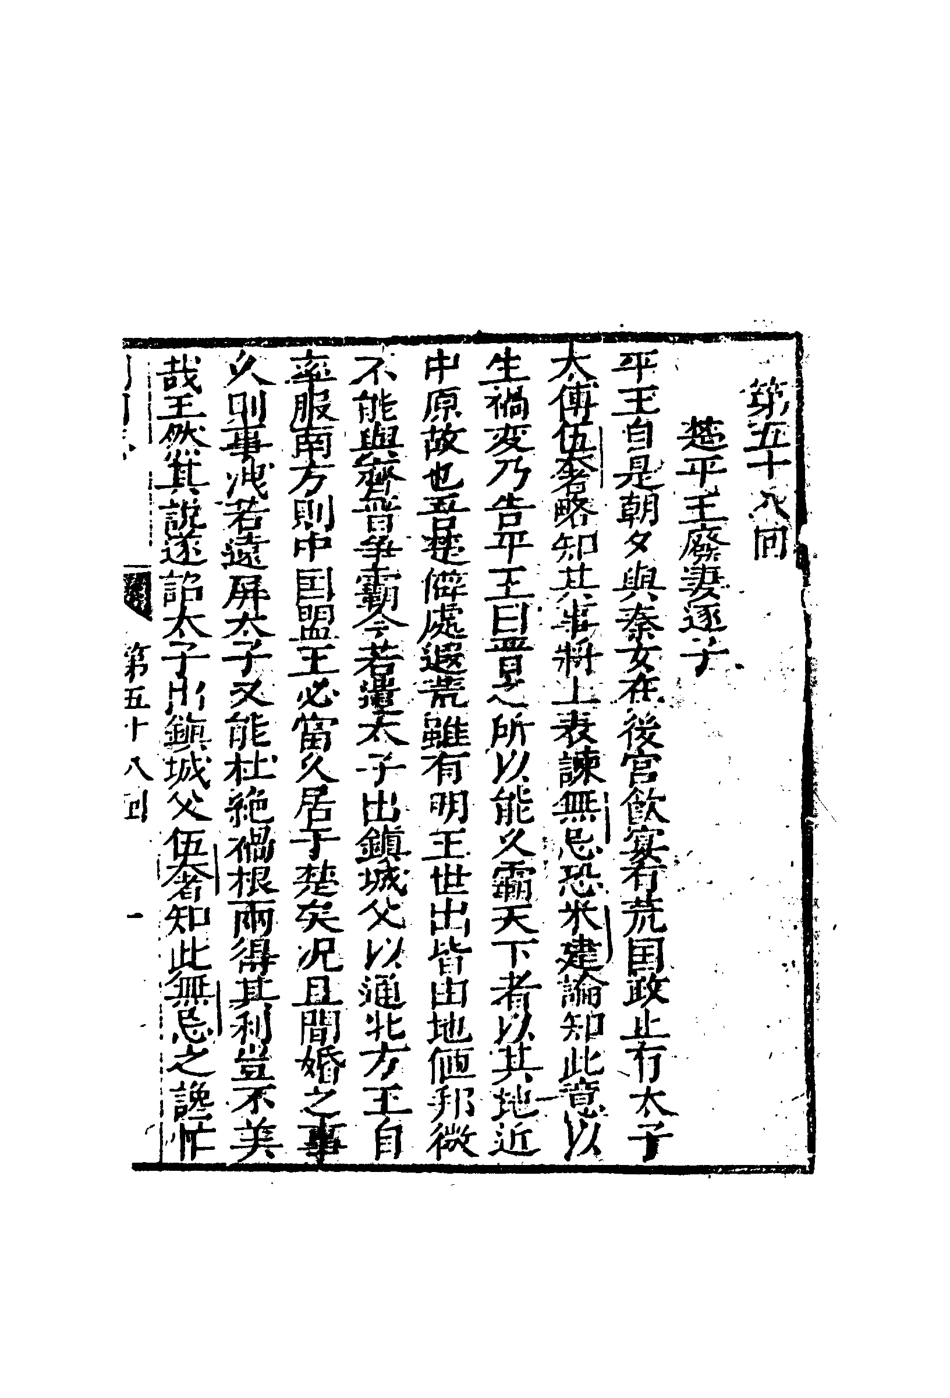 第五十八回
楚平王廢妻逐子
平王自是朝夕與秦女在後宫飲宴有荒囯政止有太子
太傅伍奢略知其事將上表諫無忌恐米建論知此意以
生禍变乃告平王曰晋之所以能久霸天下者以其地近
中原故也吾楚僻處遐荒雖有明王世出皆由地僻邦微
不能與齊晋争霸今若遣太子出鎮城父以通北方王自
率服南方則中囯盟王必當久居于楚矣况且間婚之事
久則事洩若遠屏太子又能杜絶禍根兩得其利豈不美
哉王然其說遂詔太子出鎮城父伍奢知此無忌之讒忙
第五十八回
一